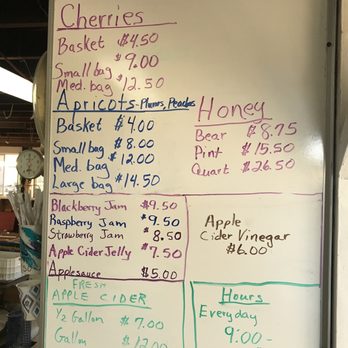 Cherries
Basket $4.50
Small bag $9.00
Med. bag $12.50
Apricots - Plums, Peaches
Basket $4.00
Small bag $8.00
Med. bag $12.00
Large bag $14.50
Honey
Bear $8.75
Pint $15.50
Quart $26.50
Blackberry Jam $9.50
Raspberry Jam $9.50
Strawberry Jam $8.50
Apple Cider Jelly $7.50
Applesauce $5.00
Apple
Cider Vinegar
$6.00
FRESH
APPLE CIDER
1/2 Gallon $7.00
Gallon $12.00
Hours
Everyday
9:00-